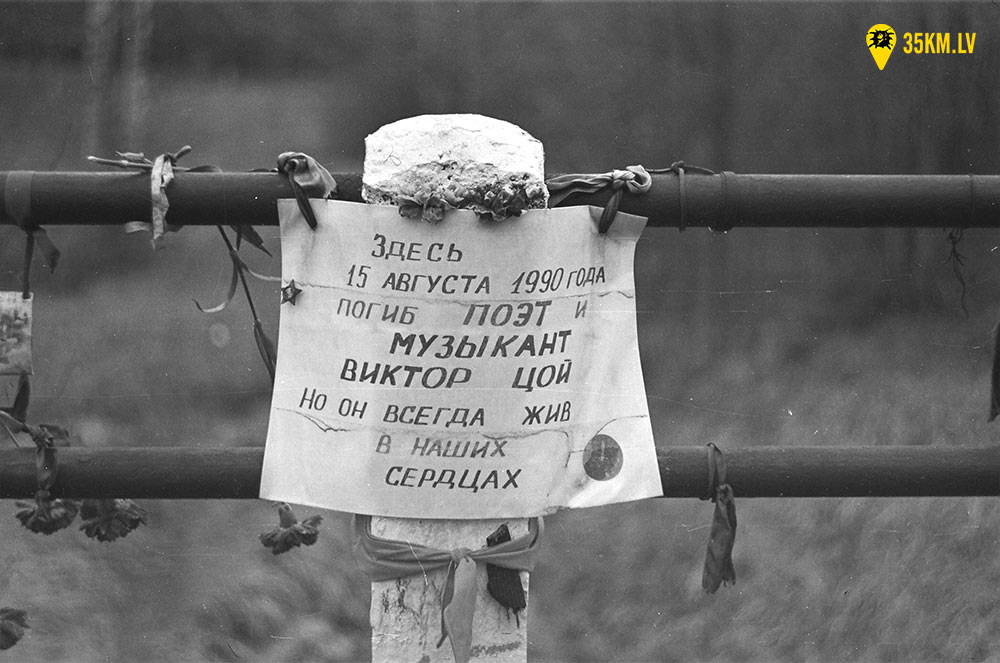 35KM.LV
Здесь
15 августа 1990 года
погиб ПОЭТ и
МУЗЫКАНТ
ВИКТОР ЦОЙ
Но он всегда жив
в наших
сердцах